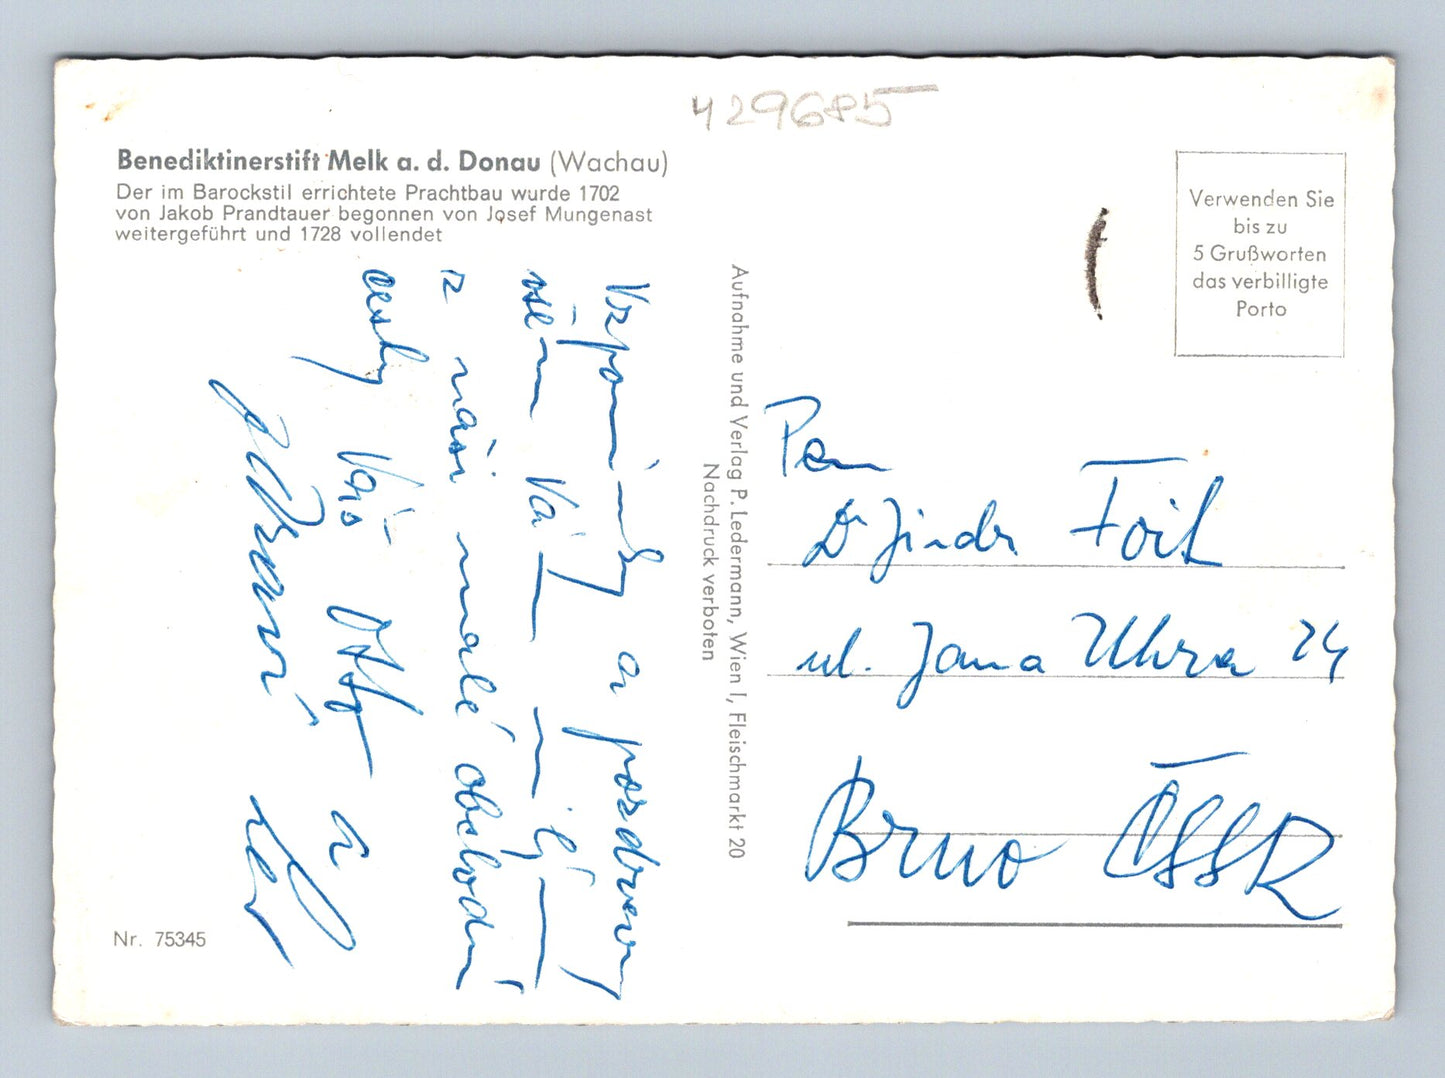 4429685
Benediktinerstift Melk a. d. Donau (Wachau)
Der im Barockstil errichtete Prachtbau wurde 1702
von Jakob Prandtauer begonnen von Josef Mungenast
weitergeführt und 1728 vollendet
Vzpomínky a pozdravy
všem Vám milým
z naší malé obchodní
cesty Váš Otto a
Nr. 75345
Aufnahme und Verlag P. Ledermann, Wien I, Fleischmarkt 20
Nachdruck verboten
Verwenden Sie
bis zu
5 Grußworten
das verbilligte
Porto
Pan
Dr Jindr Fojt
ul. Jana Uhra 24
Brno ČSSR